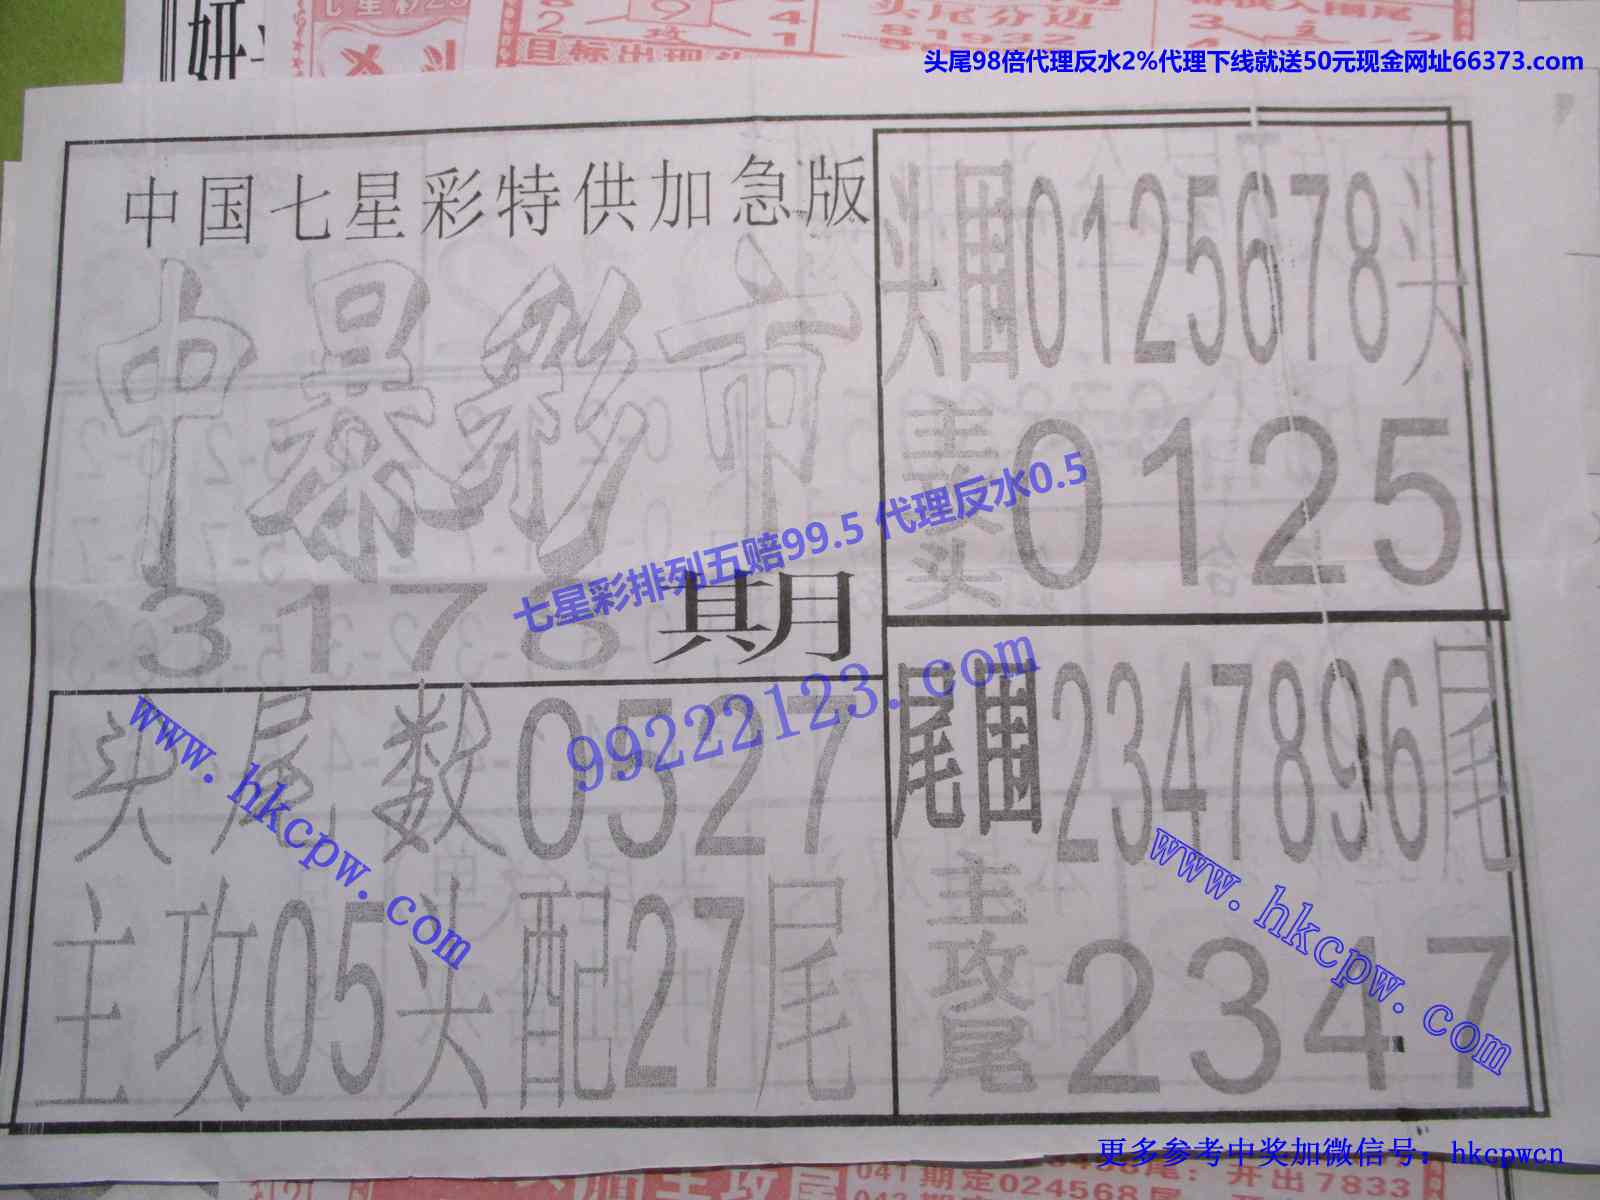 七星彩
头尾分边
81932
目标出现头
头尾98倍代理反水2%代理下线就送50元现金网址66373.com
中国七星彩特供加急版
中暴彩市
3178期
头围0125678头
主攻头0125
七星彩排列五赔99.5 代理反水0.5
99222123.com
头尾数0527
主攻05头配27尾
尾围2347896尾
主攻尾2347
www.hkcpw.com
www.hkcpw.com
更多参考中奖加微信号：hkcpwcn
041期定024568尾：开出7833